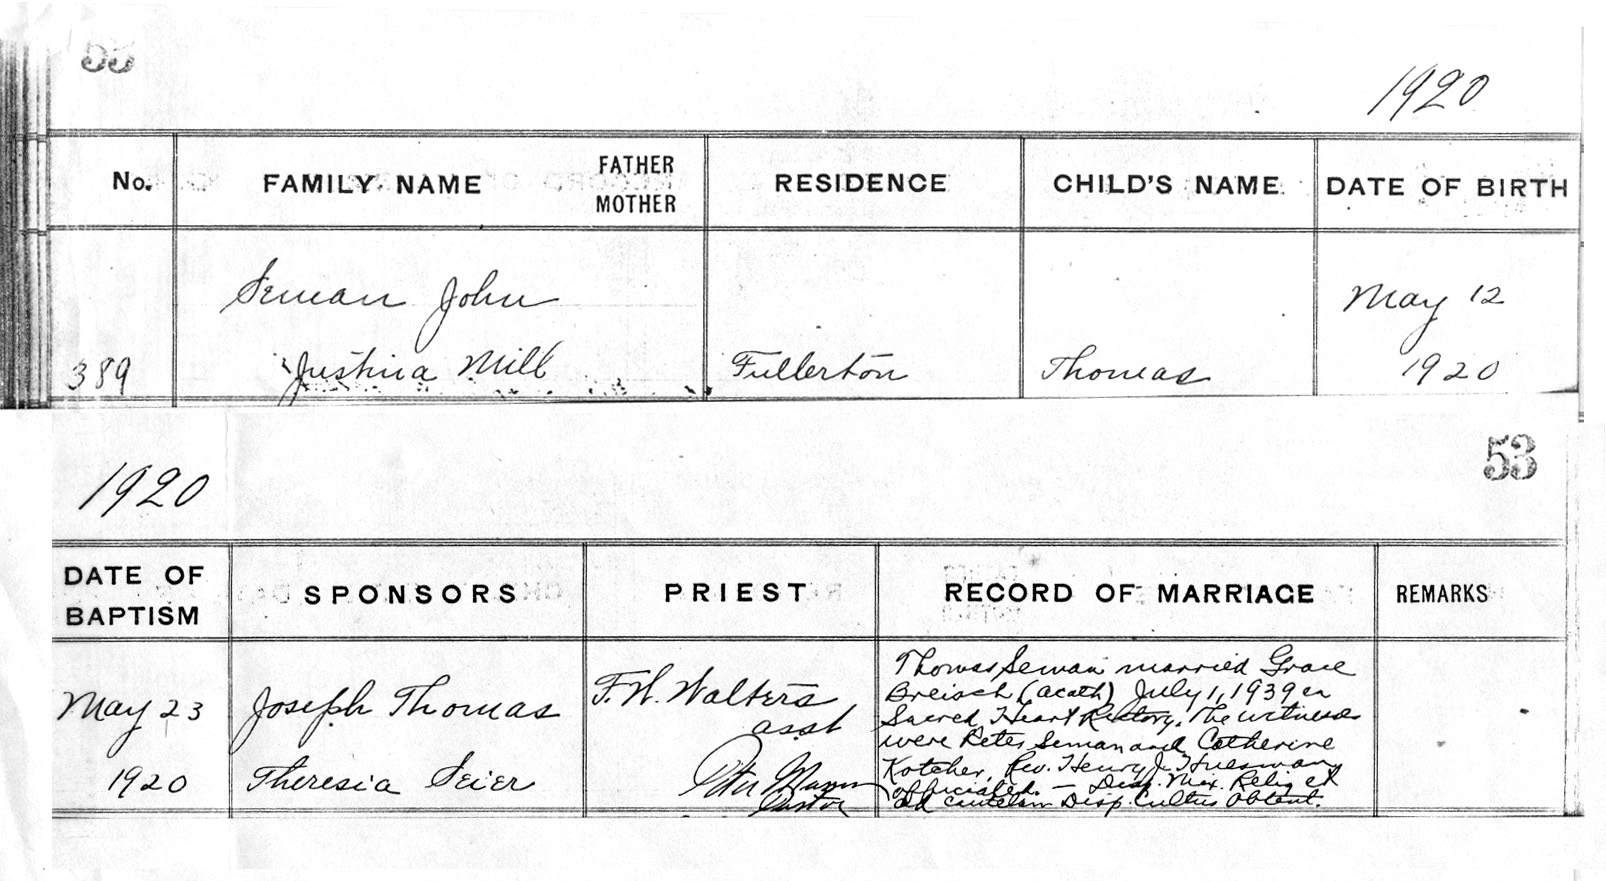 53
1920
No. FAMILY NAME FATHER MOTHER RESIDENCE CHILD'S NAME DATE OF BIRTH
Seman John May 12
389 Justina Mill Fullerton Thomas 1920
53
1920
DATE OF BAPTISM SPONSORS PRIEST RECORD OF MARRIAGE REMARKS
May 23 Joseph Thomas F. W. Walters asst
1920 Theresia Seier Peter Pastor
Thomas Seman married Grace
Breisch (acath) July 1, 1939 in
Sacred Heart Rectory. The witnesses
were Peter Seman and Catherine
Kotcher. Rev. Henry J. Huesman
officiated. — Disp. Mix. Relig et
ad cautelam Disp. Cultus Obtent.